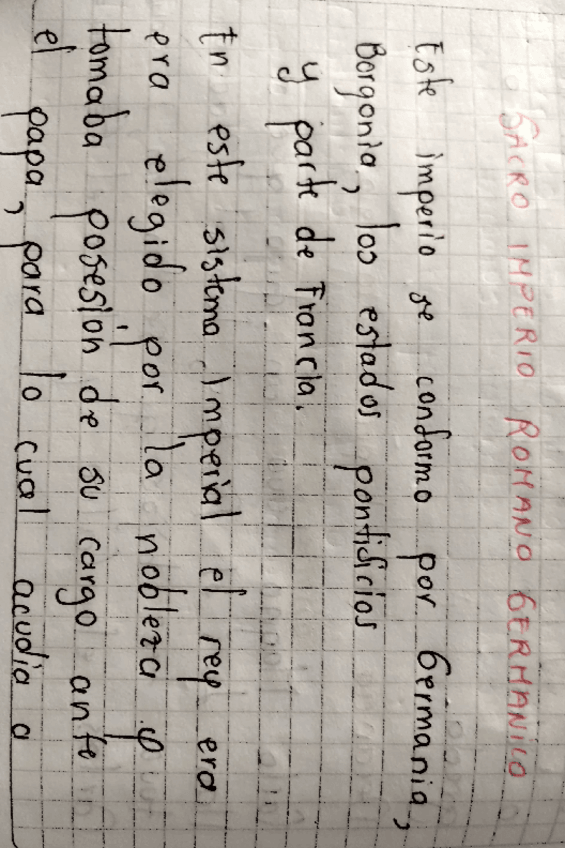 SACRO IMPERIO ROMANO GERMANICO
Este imperio se conformo por Germania,
Borgonia, los estados pontificios
y parte de Francia.
En este sistema imperial el rey era
era elegido por la nobleza y
tomaba posesión de su cargo ante
el papa, para lo cual acudia a